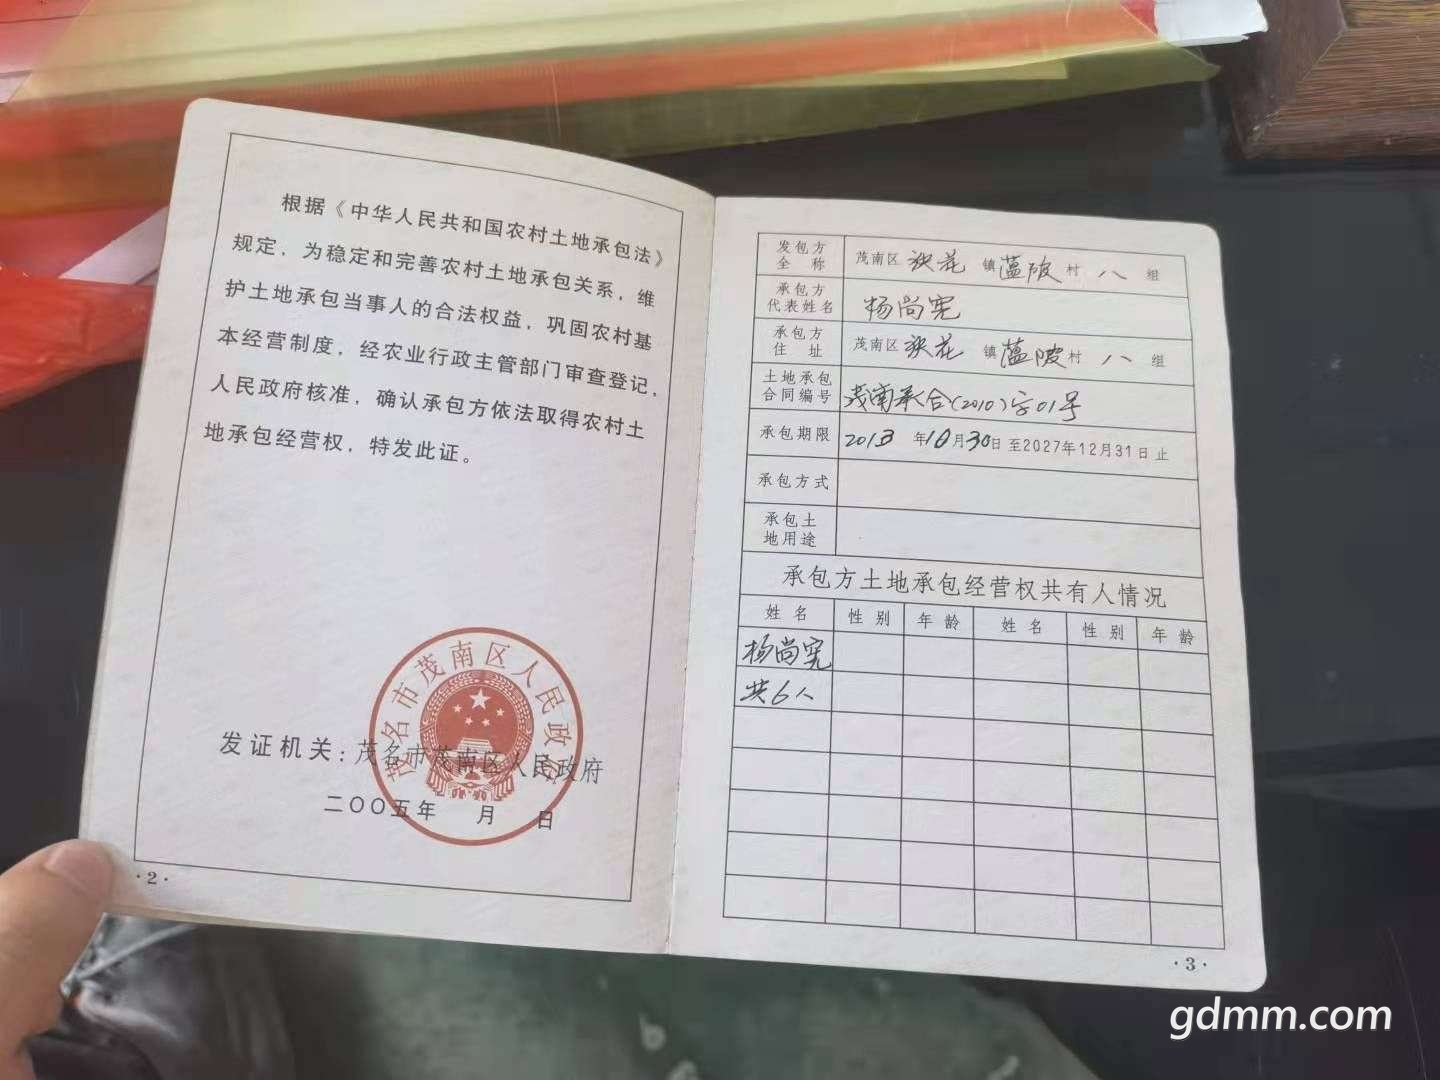 根据《中华人民共和国农村土地承包法》
规定，为稳定和完善农村土地承包关系，维
护土地承包当事人的合法权益，巩固农村基
本经营制度，经农业行政主管部门审查登记，
人民政府核准，确认承包方依法取得农村土
地承包经营权，特发此证。
茂名市茂南区人民政府
发证机关：茂名市茂南区人民政府
二〇〇五年 月 日
·2·
发包方全称 茂南区 袂花 镇 蕴陂 村 八 组
承包方代表姓名 杨尚宪
承包方住址 茂南区 袂花 镇 蕴陂 村 八 组
土地承包合同编号 茂南承合(2010)字01号
承包期限 2013 年10月30日至2027年12月31日止
承包方式
承包土地用途
承包方土地承包经营权共有人情况
姓名 性别 年龄 姓名 性别 年龄
杨尚宪
共6人
·3·
gdmm.com